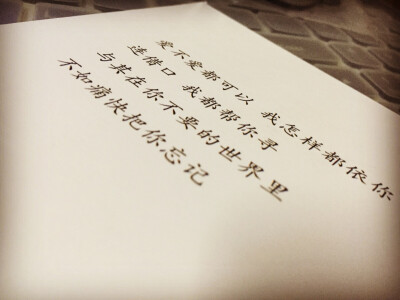 爱不爱都可以 我怎样都依你
连借口 我都帮你寻
与其在你不要的世界里
不如痛快把你忘记